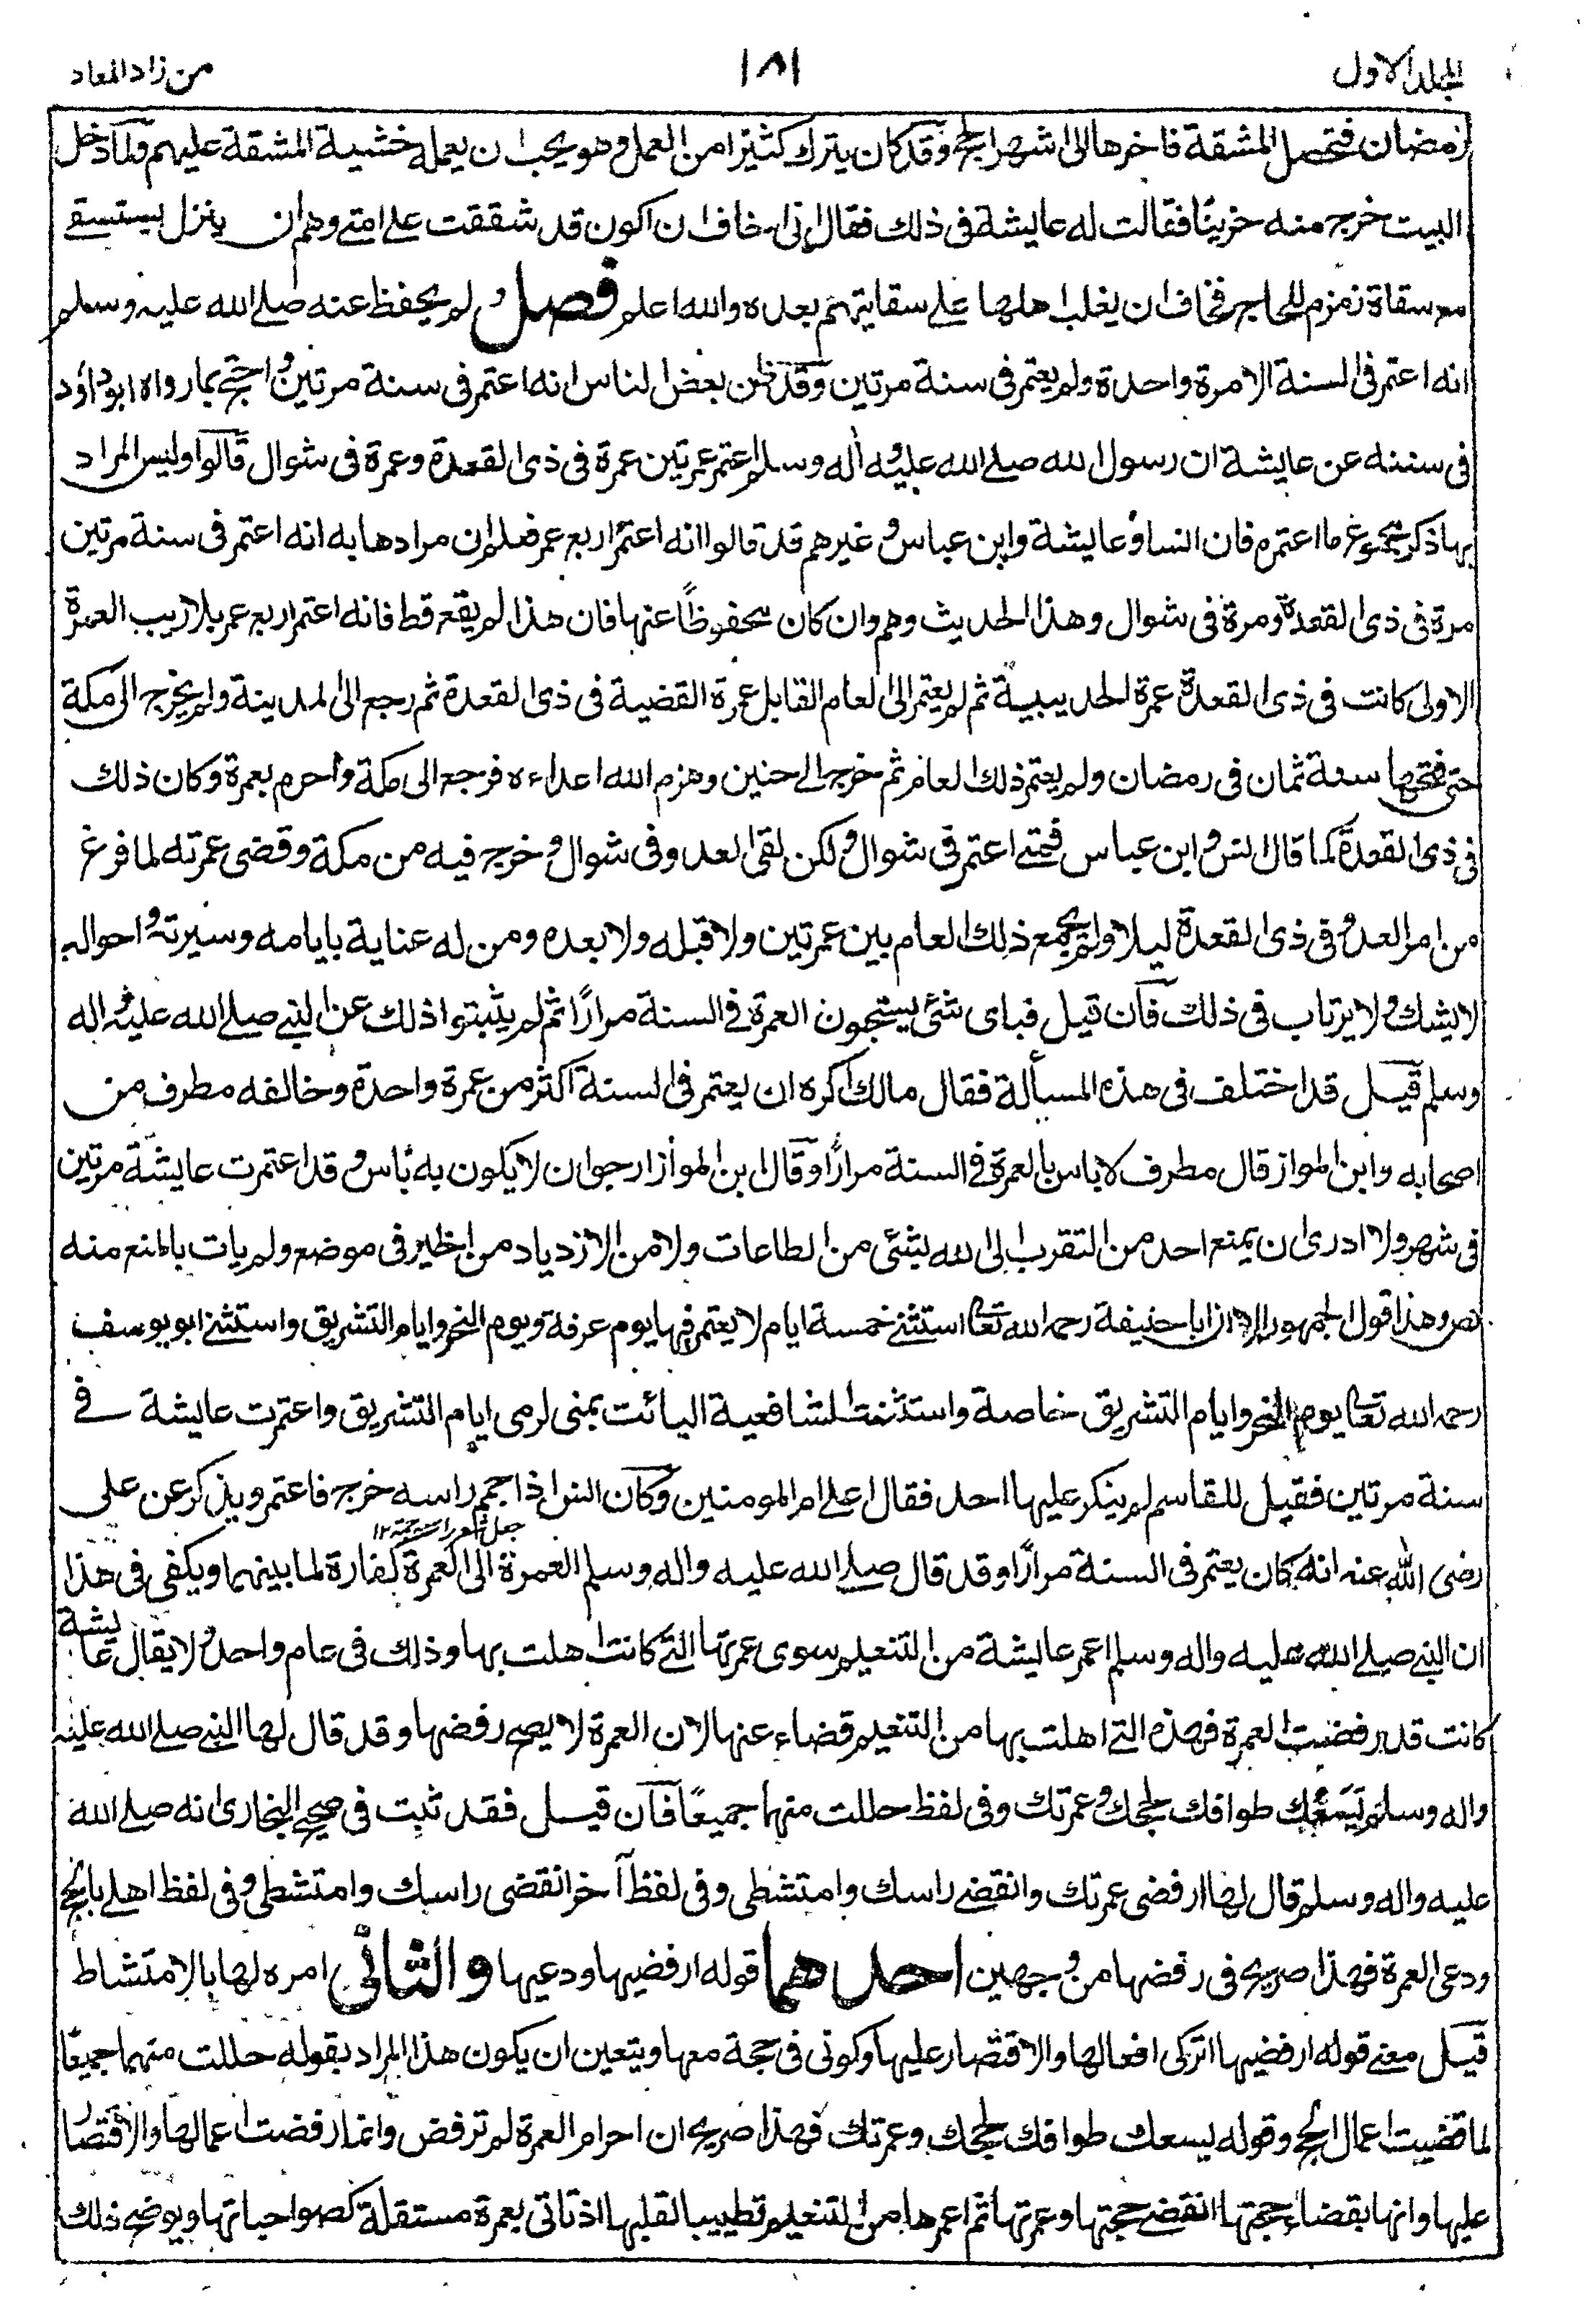 المجلد الاول
١٨١
من زاد المعاد
رمضان فتحصل المشقة فاخرها الى اشهر الحج وقد كان يترك كثيرا من العمل وهو يحب ان يعمله خشية المشقة عليهم ولما دخل
البيت خرج منه حزينًا فقالت له عايشة فى ذلك فقال انى اخاف ان اكون قد شققت على امتى وهم ان ينزل يستسقے
مع سقاة زمزم للحاج فخاف ان يغلب اهلها على سقايتهم بعده والله اعلم فصل ولم يحفظ عنه صلے الله عليه وسلم
انه اعتمر فى السنة الا مرة واحدة ولم يعتمر فى سنة مرتين وقد ظن بعض الناس انه اعتمر فى سنة مرتين واحتج بما رواه ابو داؤد
فى سننه عن عايشة ان رسول الله صلے الله عليه واله وسلم اعتمر عمرتين عمرة فى ذى القعدة وعمرة فى شوال قالوا وليس المراد
بها ذكر مجموع ما اعتمره فان انسا وعايشة وابن عباس وغيرهم قد قالوا انه اعتمر اربع عمر فعلم ان مرادها به انه اعتمر فى سنة مرتين
مرة فى ذى القعدة ومرة فى شوال وهذا الحديث وهم وان كان محفوظًا عنها فان هذا لم يقع قط فانه اعتمر اربع عمر بلا ريب العمرة
الاولى كانت فى ذى القعدة عمرة الحديبية ثم لم يعتمر الى العام القابل عمرة القضية فى ذى القعدة ثم رجع الى المدينة ولم يخرج الى مكة
حتى فتحها سنة ثمان فى رمضان ولم يعتمر ذلك العام ثم خرج الے حنين وهزم الله اعداءه فرجع الى مكة واحرم بعمرة وكان ذلك
فى ذى القعدة كما قال انس وابن عباس فمتے اعتمر فى شوال ولكن لقى العدو فى شوال وخرج فيه من مكة وقضى عمرته لما فرغ
من امر العدو فى ذى القعدة ليلا ولم يجمع ذلك العام بين عمرتين ولا قبله ولا بعده ومن له عناية بايامه وسيرته واحواله
لا يشك ولا يرتاب فى ذلك فان قيل فباى شئ يستحبون العمرة فے السنة مرارًا ثم لم يثبتوا ذلك عن النبے صلے الله عليه واله
وسلم قيل قد اختلف فى هذه المسألة فقال مالك اكره ان يعتمر فى السنة اكثر من عمرة واحدة وخالفه مطرف من
اصحابه وابن المواز قال مطرف لا باس بالعمرة فے السنة مرارًا وقال ابن المواز ارجو ان لا يكون به بأس وقد اعتمرت عايشة مرتين
فى شهر ولا ادرى ان يمنع احد من التقرب الى الله بشئ من الطاعات ولا من الازدياد من الخير فى موضع ولم يات بالمنع منه
نص وهذا قول الجمهور الا ان ابا حنيفة رحمه الله تعالى استثنے خمسة ايام لا يعتمر فيها يوم عرفة ويوم النحر وايام التشريق واستثنے ابو يوسف
رحمه الله تعالى يوم النحر وايام التشريق خاصة واستثنت الشافعية البائت بمنى لرمى ايام التشريق واعتمرت عايشة فے
سنة مرتين فقيل للقاسم لم ينكر عليها احد فقال اعلى ام المومنين وكان انس اذا حمم راسه خرج فاعتمر ويذكر عن على
رضى الله عنه انه كان يعتمر فى السنة مرارًا وقد قال صلے الله عليه واله وسلم العمرة الى العمرة كفارة لما بينهما ويكفى فى هذا
ان النبے صلے الله عليه واله وسلم اعمر عايشة من التنعيم سوى عمرتها التے كانت اهلت بها وذلك فى عام واحد ولا يقال عايشة
كانت قد رفضت العمرة فهذه التے اهلت بها من التنعيم قضاء عنها لان العمرة لا يصح رفضها وقد قال لها النبے صلے الله عليه
واله وسلم يَسَعُكِ طوافك لحجك وعمرتك وفى لفظ حللت منهما جميعًا فان قيل فقد ثبت فى صحيح البخارى انه صلے الله
عليه واله وسلم قال لها ارفضى عمرتك وانقضے راسك وامتشطى وفى لفظ آخر انقضى راسك وامتشطى وفى لفظ اهلے بالحج
ودعى العمرة فهذا صريح فى رفضها من وجهين احدهما قوله ارفضيها ودعيها والثانى امره لها بالامتشاط
قيل معنے قوله ارفضيها اتركى افعالها والاقتصار عليها وكونى فى حجة معها ويتعين ان يكون هذا المراد بقوله حللت منهما جميعًا
لما قضيت اعمال الحج وقوله يسعك طوافك لحجك وعمرتك فهذا صريح ان احرام العمرة لم ترفض وانما رفضت اعمالها والاقتصار
عليها وانها بقضاء حجتها انقضے حجتها وعمرتها ثم اعمرها من التنعيم تطييبا لقلبها اذ تاتى بعمرة مستقلة كصواحباتها ويوضح ذلك